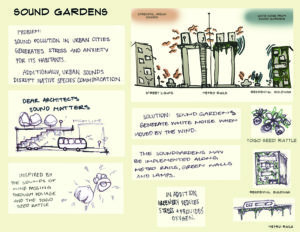 SOUND GARDENS
PROBLEM:
SOUND POLLUTION IN URBAN CITIES
GENERATES STRESS AND ANXIETY
FOR ITS HABITANTS.
ADDITIONALLY, URBAN SOUNDS
DISRUPT NATIVE SPECIES COMMUNICATION
DEAR ARCHITECTS
SOUND MATTERS
INSPIRED BY
THE SOUNDS OF
WIND PASSING
THROUGH FOLIAGE
AND THE TOGO
SEED RATTLE
STREET LIGHTS
METRO RAILS
RESIDENTIAL BUILDINGS
SOLUTION: SOUND GARDENS
GENERATE WHITE NOISE WHEN
MOVED BY THE WIND.
THE SOUNDGARDENS MAY
BE IMPLEMENTED ALONG
METRO RAILS, GREEN WALLS
AND LAMPS.
IN ADDITION
GREENERY REDUCES
STRESS + PROVIDES
OXYGEN.
TOGO SEED RATTLE
RESIDENTIAL BUILDINGS
METRO RAILS